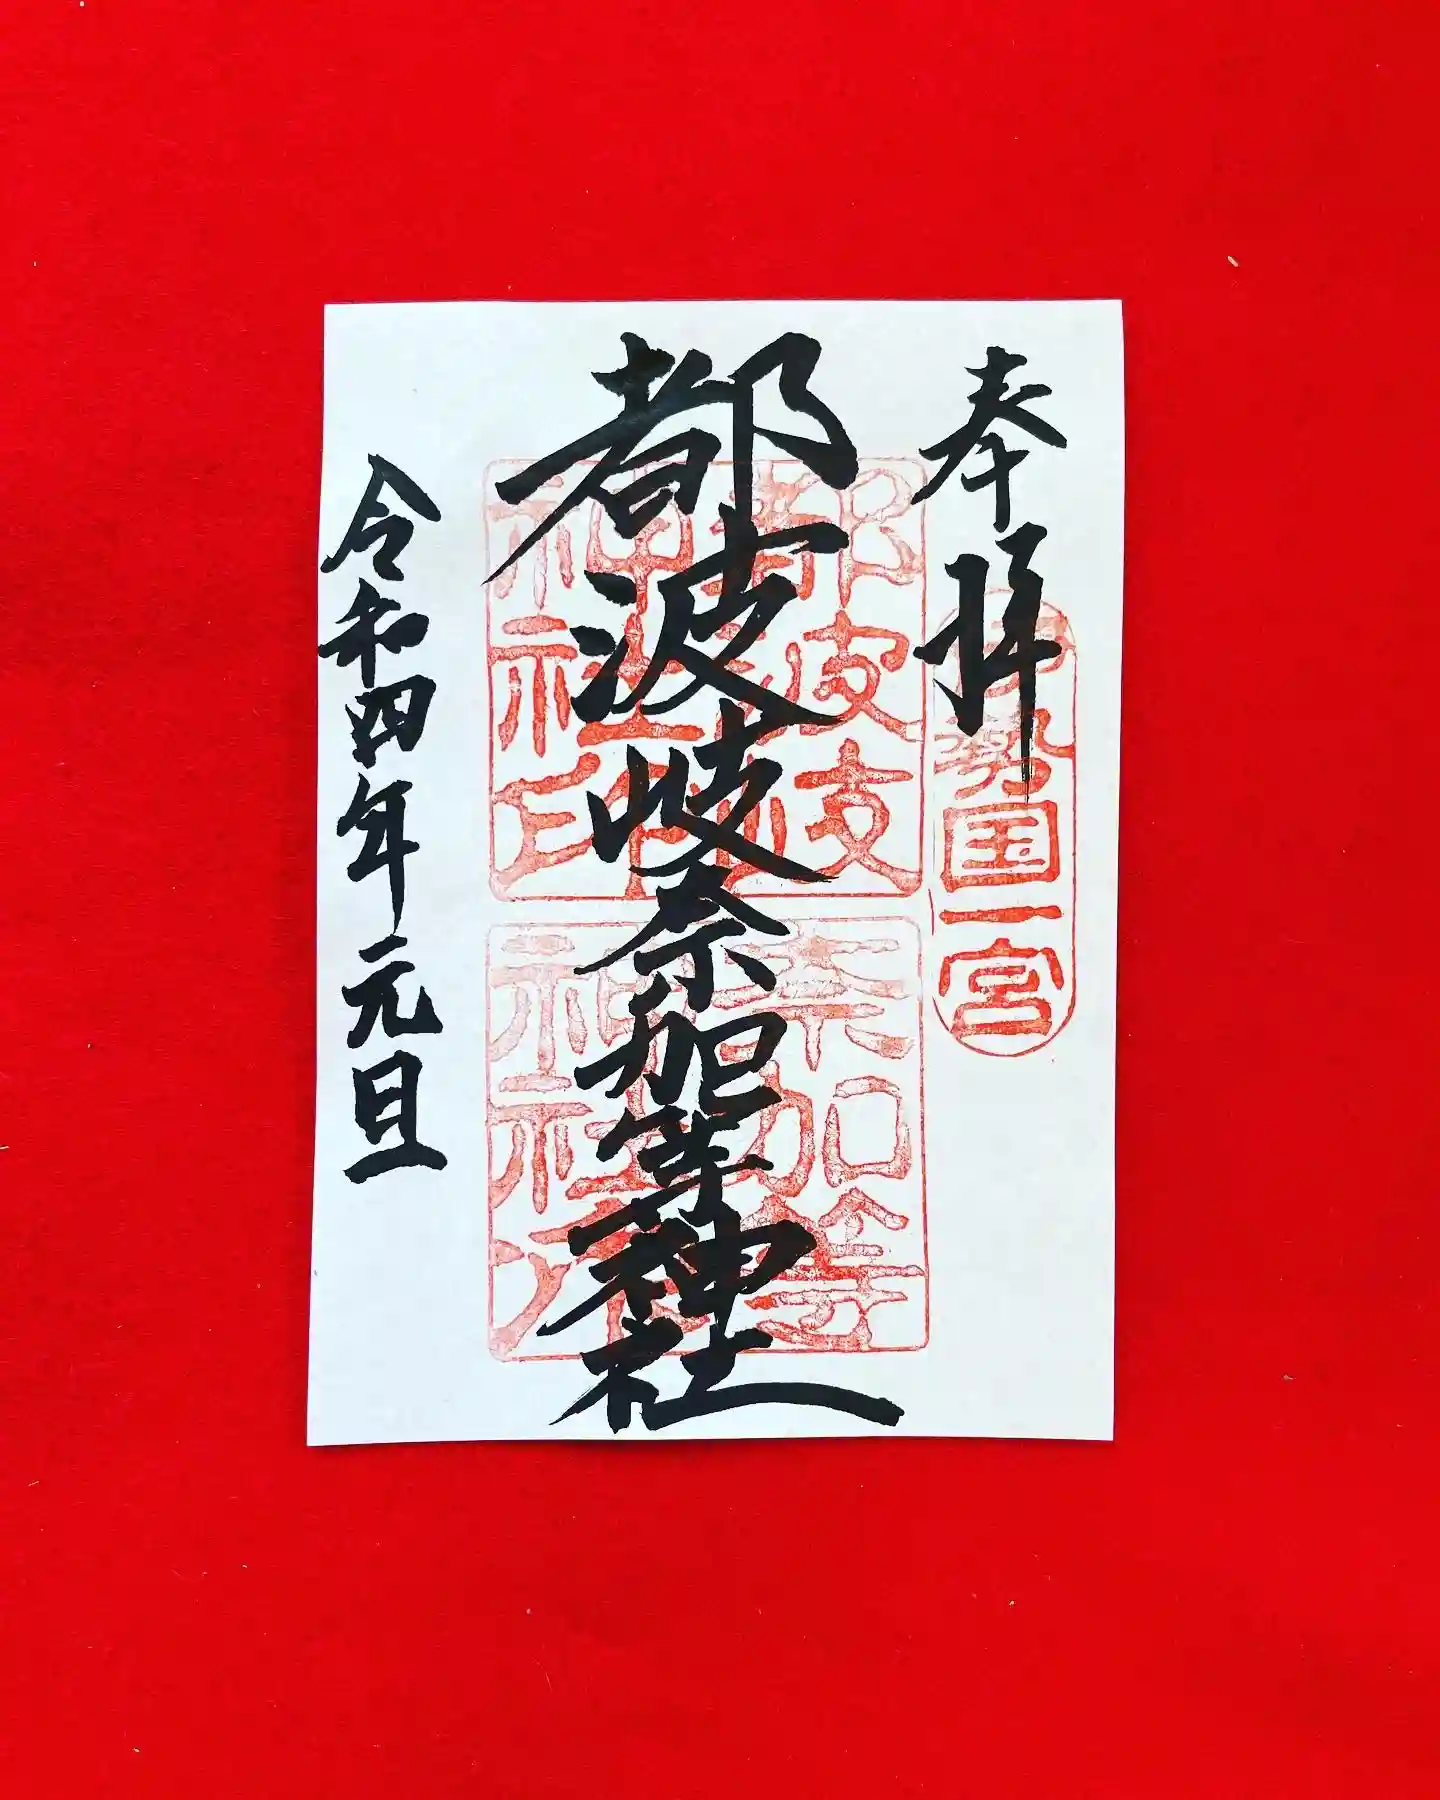 奉拝
伊勢国一宮
都波岐奈加等神社
都波岐
神社印
奈加等
神社
令和四年元旦